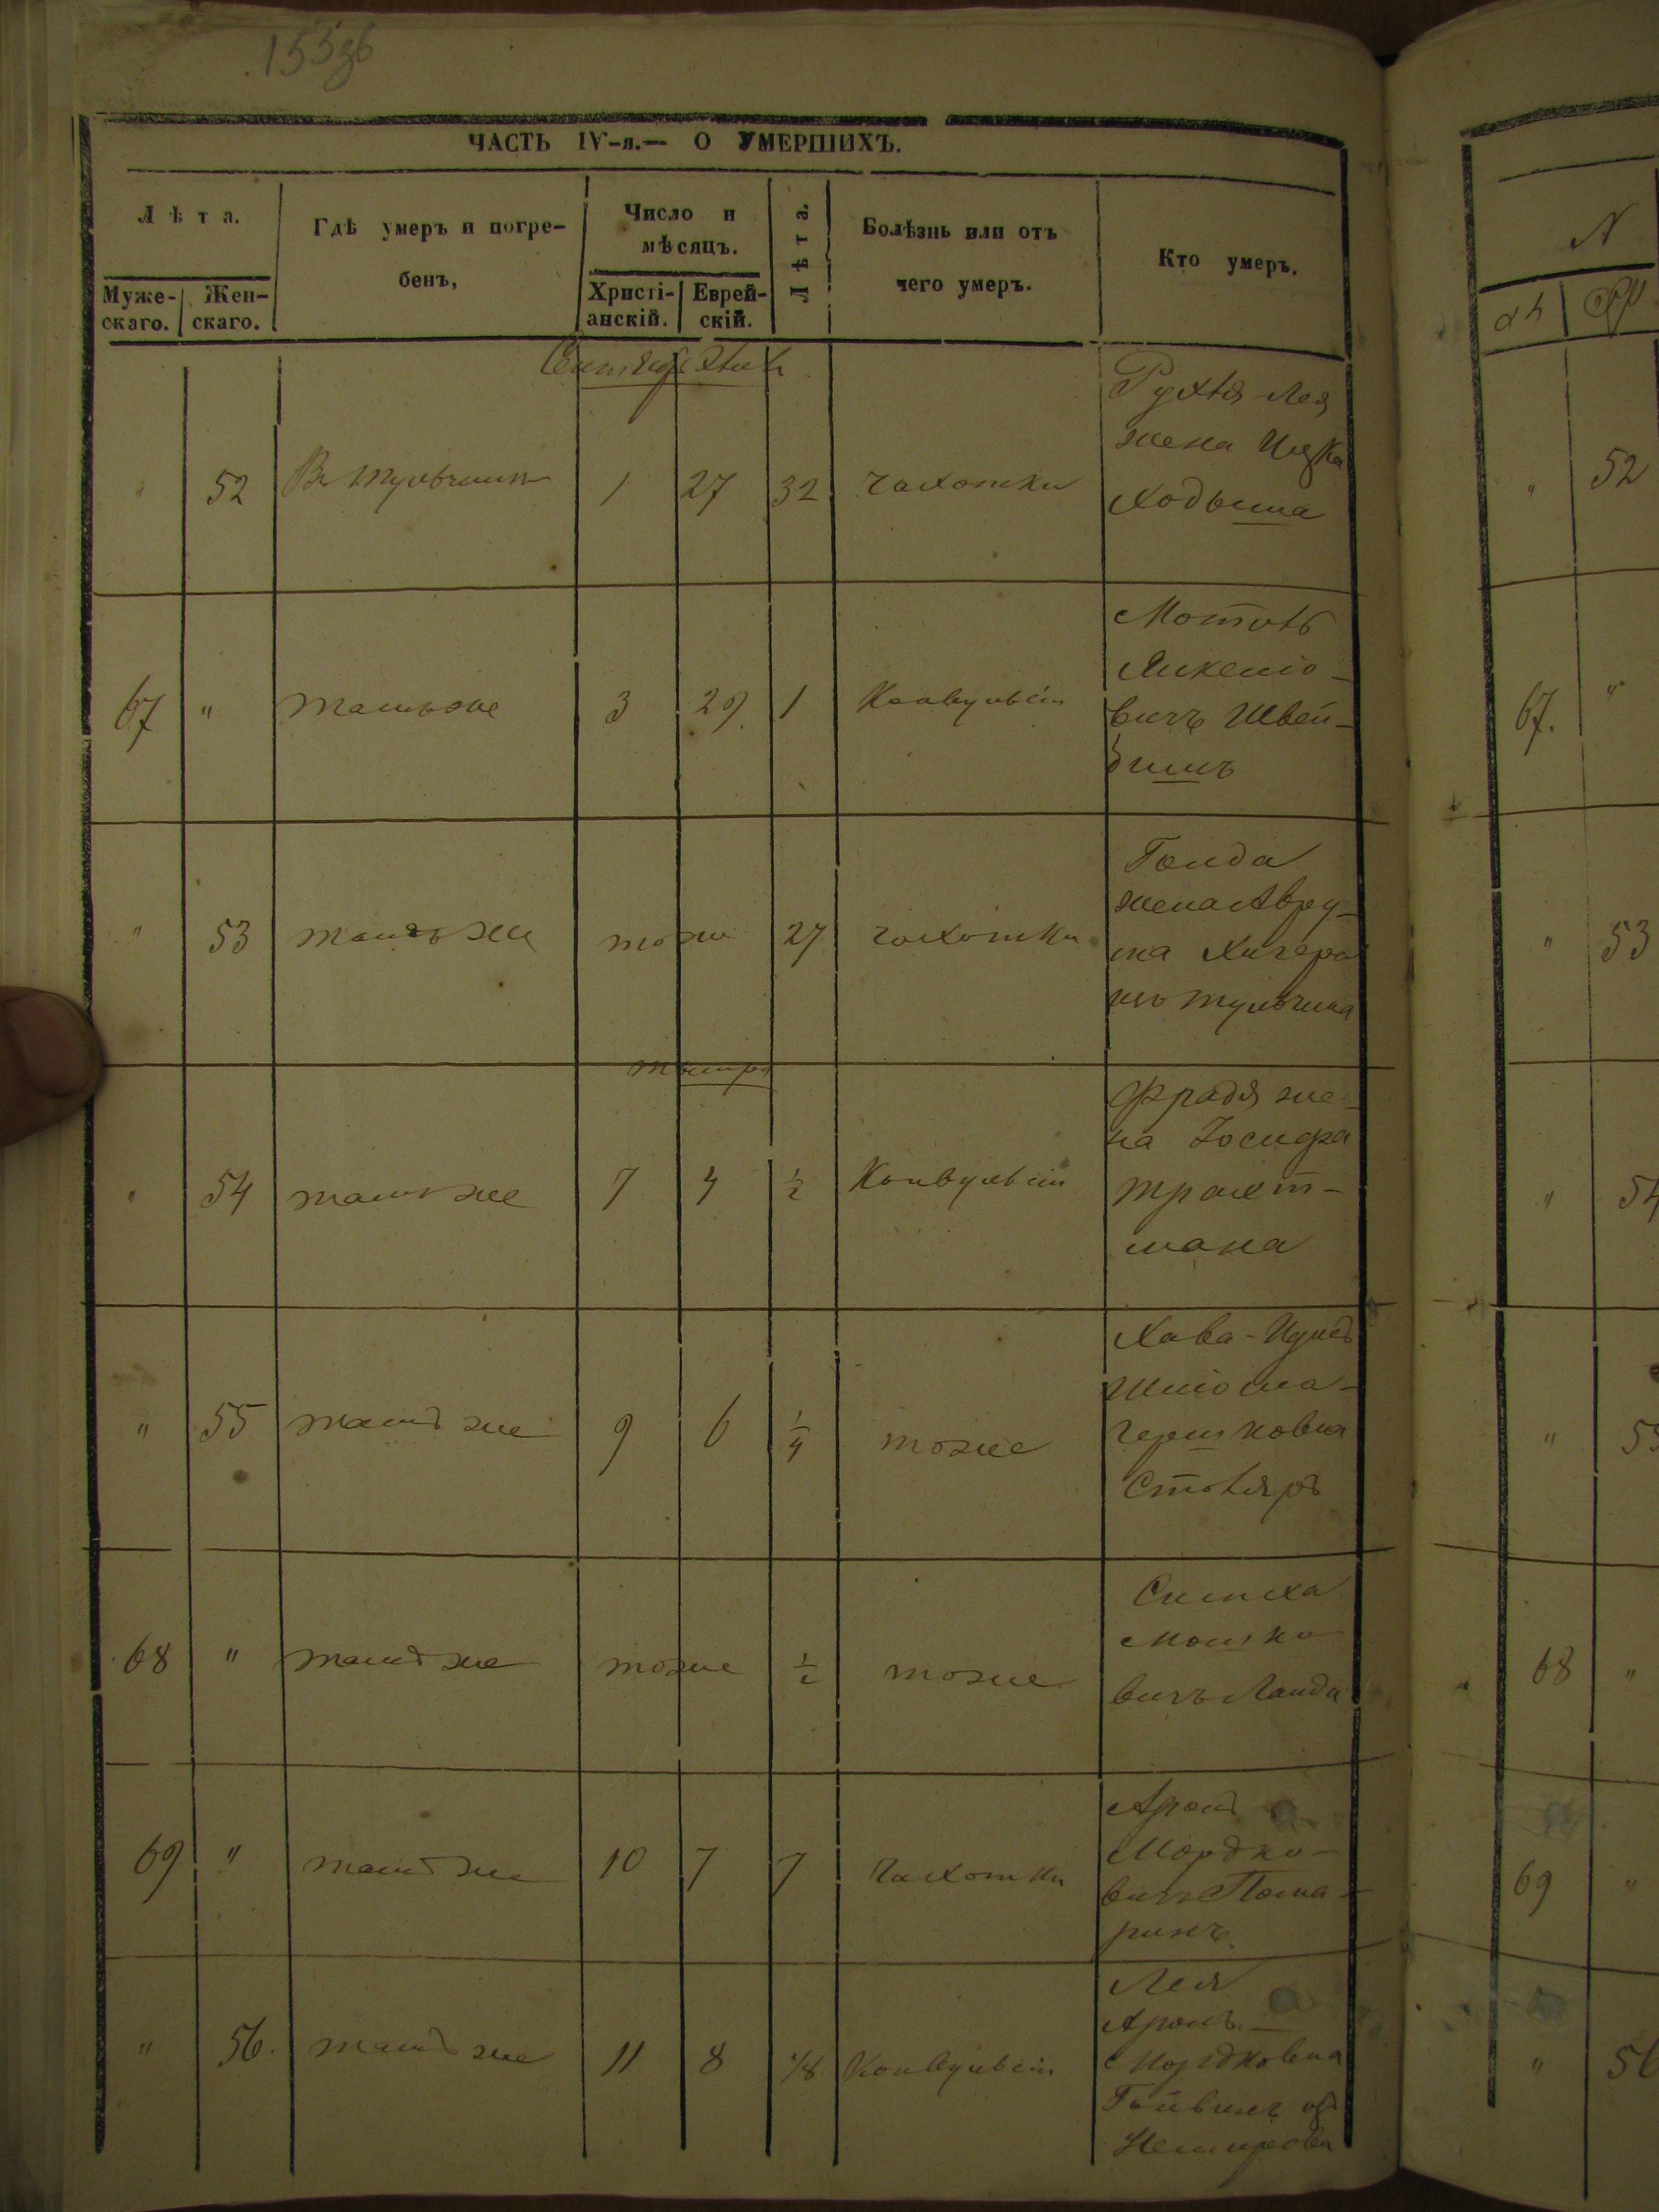 155 зб
ЧАСТЬ IV-я.— О УМЕРШИХЪ.
Лѣта.
Муже-скаго. Жен-скаго.
Гдѣ умеръ и погре-
бенъ,
Число и
мѣсяцъ.
Христі-анскій. Еврей-скій.
Лѣта.
Болѣзнь или отъ
чего умеръ.
Кто умеръ.
" 52 Въ Тульчинѣ 1 27 32 Чахотки
Рухля-Лея
жена Ицка
67 " тамъже 3 29 1 Конвульсіи
Мотель
вичъ Швей-
" 53 тамъ же тоже 27 чахотки
Голда
жена Авру-
ма Хигера
изъ Тульчина
Тишри
" 54 тамъ же 7 4 1/2 Конвульсіи
Фрадя же-
на Іосифа
Трахт-
мана
" 55 тамъ же 9 6 1/4 тоже
Хава-
Шліома-
Гершковна
Столяръ
68 " тамъ же тоже 1/2 тоже
Симха
Мошко
вичъ Ланда
69 " тамъ же 10 7 7 Чахотки
Аронъ
Мордко-
вичъ
" 56. тамъ же 11 8 1/8 Конвульсіи
Лея
Аронъ-
Мордковна
Немирова
N
52
67. "
" 53
" 54
" 55
68 "
69 "
" 56